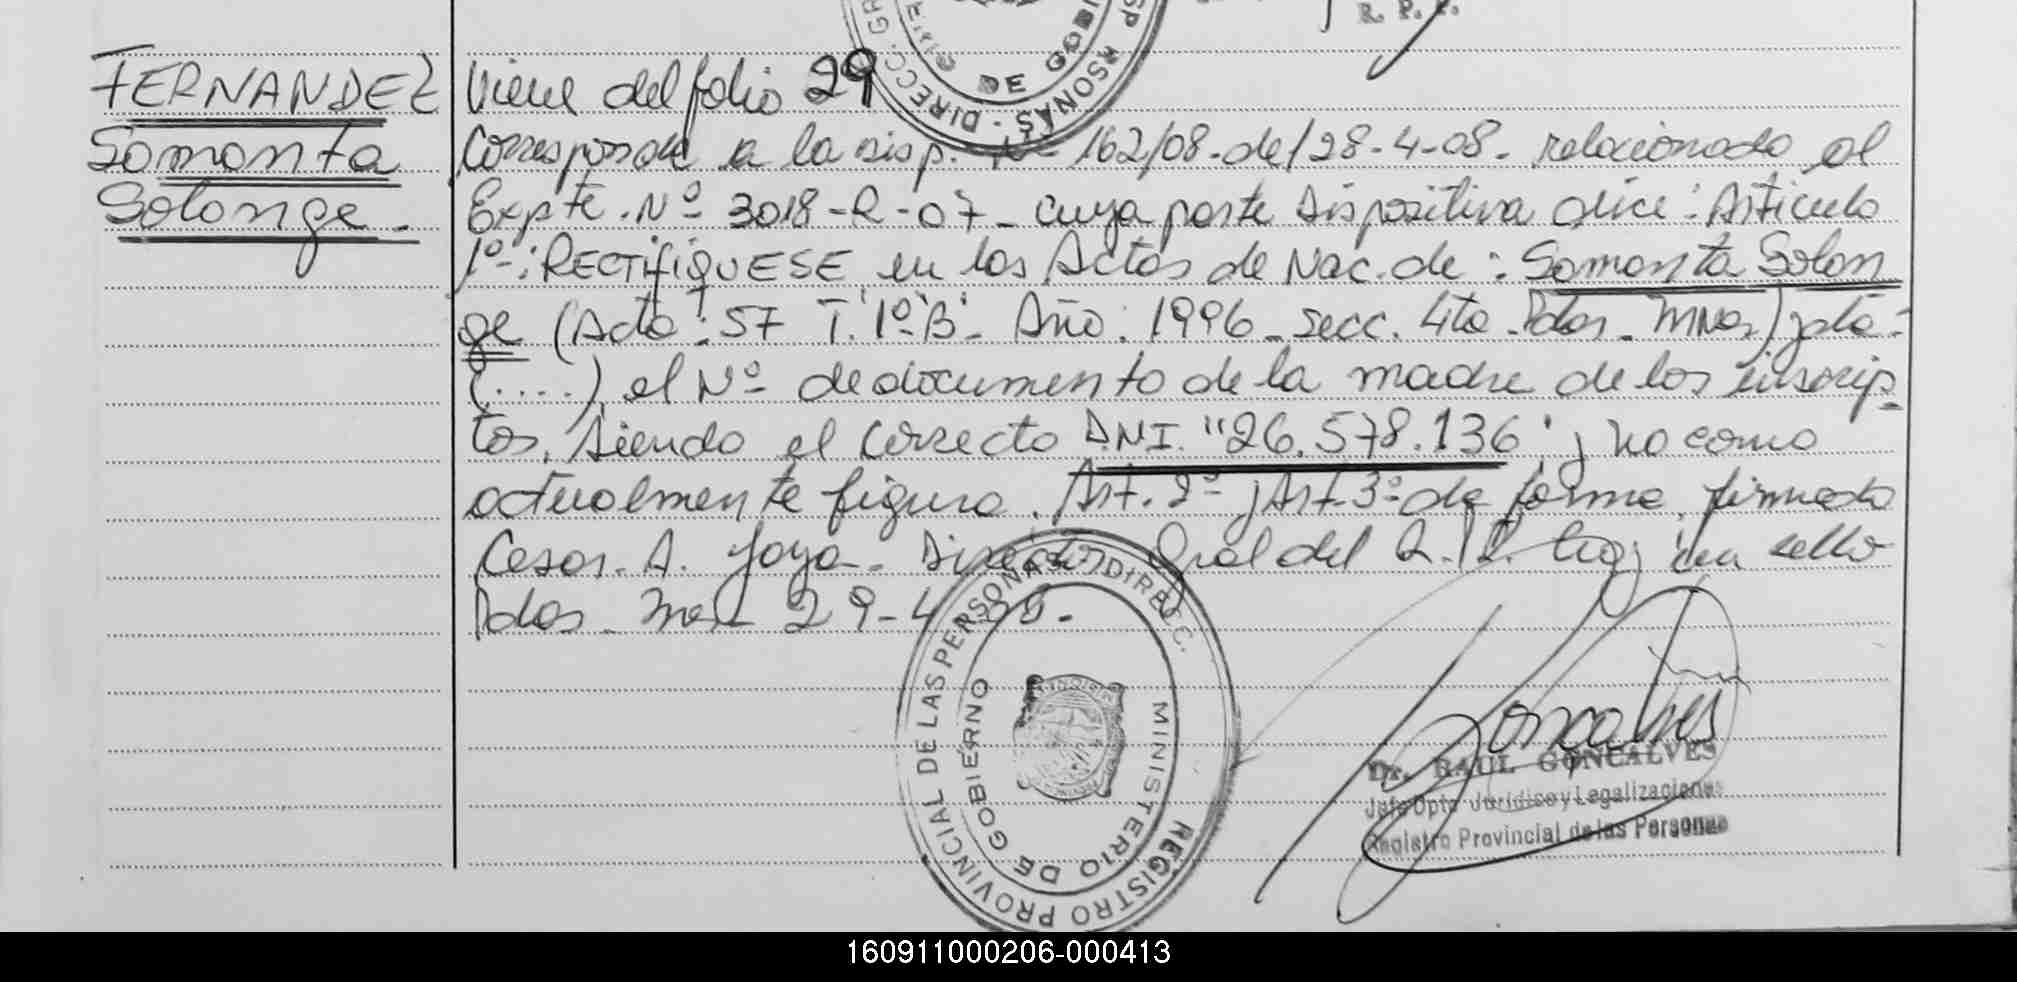 R. P. P.
DIRECC. GR
RSONAS
DE GOB
FERNANDEZ
Samanta
Solange.
Viene del folio 29
Corresponde a la Disp. Nº 162/08-del 28-4-08. relacionada al
Expte. Nº 3018-R-07- cuya parte dispositiva dice: Articulo
1º-: RECTIFIQUESE en las Actas de Nac. de: Samanta Solan
ge (Acta: 57 T. 1º"B". Año: 1996-Secc. 4ta-Pdas-Mnes)
(.....) el Nº de documento de la madre de los inscrip
tos, siendo el correcto D.N.I. "26.578.136" y no como
actualmente figura. Art. 2º y Art. 3º de forma, firmado
Cesar. A. Director Gral del R.P.
Pdas. 29-4
REGISTRO PROVINCIAL DE LAS PERSONAS - DIRECC.
MINISTERIO DE GOBIERNO
Goncalves
Dr. RAUL GONCALVES
Jefe Dpto Juridico y Legalizaciones
Registro Provincial de las Personas
160911000206-000413